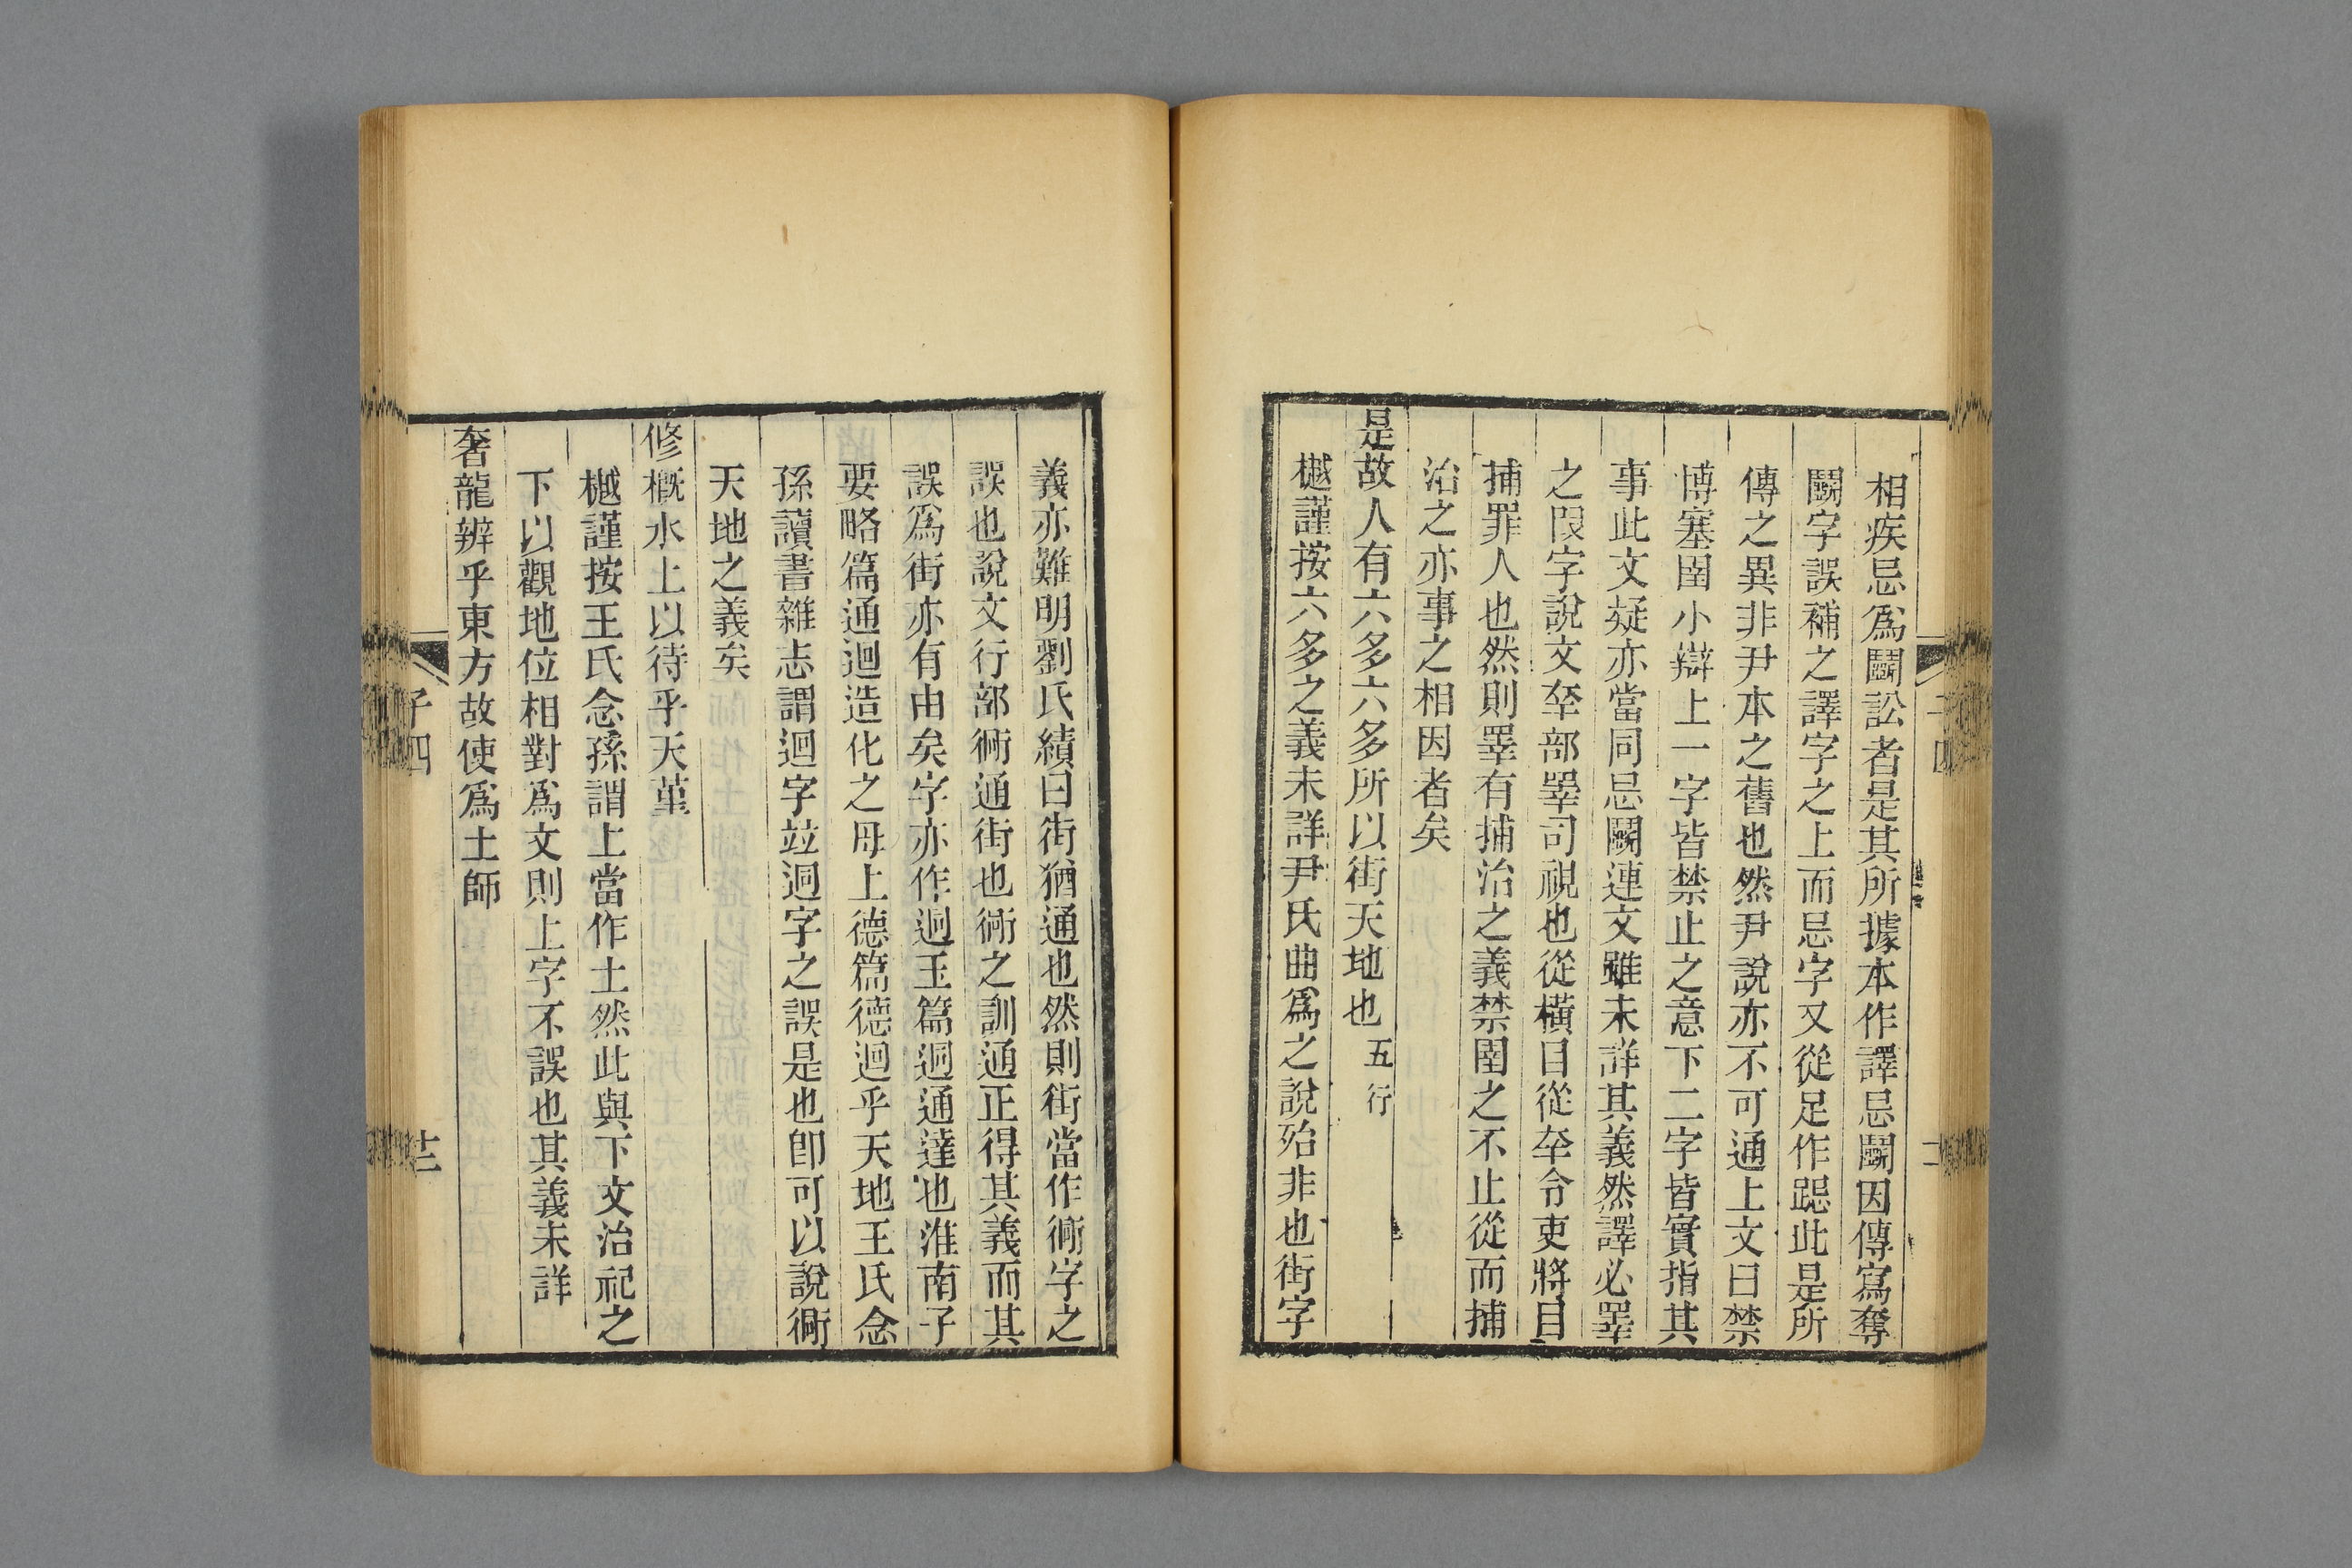 相疾忌爲鬭訟者是其所據本作譯忌鬭因傳寫奪
鬭字誤補之譯字之上而忌字又從足作跽此是所
傳之異非尹本之舊也然尹說亦不可通上文曰禁
博塞圉小辯上一字皆禁止之意下二字皆實指其
事此文疑亦當同忌鬭連文雖未詳其義然譯必睪
之限字說文㚔部睪司視也從橫目從㚔令吏將目
捕罪人也然則睪有捕治之義禁圉之不止從而捕
治之亦事之相因者矣
是故人有六多六多所以街天地也 五行
樾謹按六多之義未詳尹氏曲爲之說殆非也街字
義亦難明劉氏績曰街猶通也然則街當作衕字之
誤也說文行部衕通街也衕之訓通正得其義而其
誤爲街亦有由矣字亦作迵玉篇迵通達也淮南子
要略篇通迵造化之母上德篇德迵乎天地王氏念
孫讀書雜志謂迴字竝迵字之誤是也卽可以說衕
天地之義矣
修槪水上以待乎天菫
樾謹按王氏念孫謂上當作土然此與下文治祀之
下以觀地位相對爲文則上字不誤也其義未詳
奢龍辨乎東方故使爲土師
子四
十三